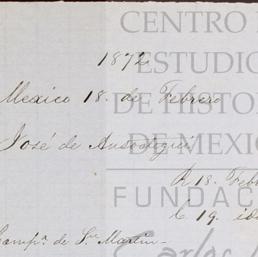 CENTRO
ESTUDIO
DE HISTOR
DE MEXIC
FUNDAC
Carlos
1872
Mexico 18. de Febrero
José de Ansoategui
R 18. Feb
C 19. id
Camp.ª de S.n Martin